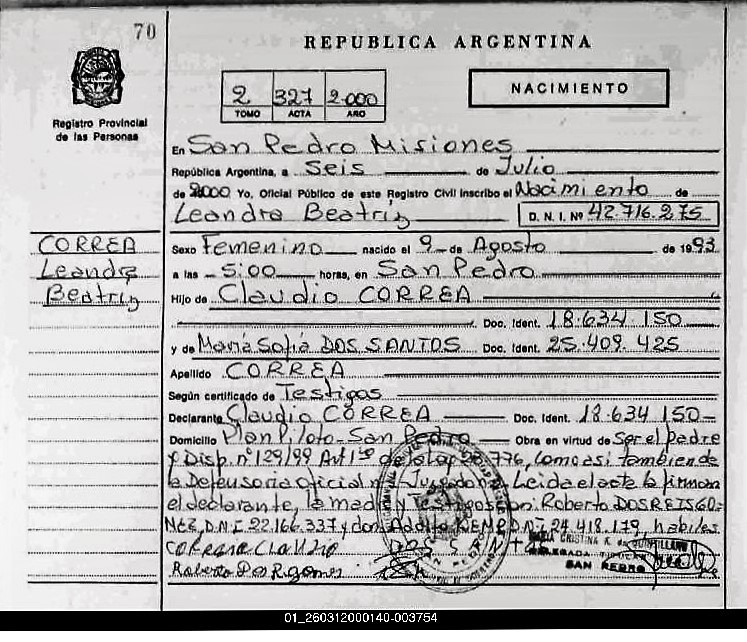 70
REPUBLICA ARGENTINA
2 327 2.000
TOMO ACTA AÑO
NACIMIENTO
Registro Provincial
de las Personas
En San Pedro Misiones
República Argentina, a Seis de Julio
de 2000 Yo, Oficial Público de este Registro Civil inscribo el Nacimiento de
Leandra Beatriz D. N. I. Nº 42.716.275
CORREA
Leandra
Beatriz
Sexo Femenino nacido el 9 de Agosto de 1993
a las 5:00 horas, en San Pedro
Hijo de Claudio CORREA
Doc. Ident. 18.634.150
y de María Sofia DOS SANTOS Doc. Ident. 25.409.425
Apellido CORREA
Según certificado de Testigos
Declarante Claudio CORREA Doc. Ident. 18.634.150
Domicilio Plan Piloto - San Pedro Obra en virtud de Ser el padre
y Disp. nº 129/99 Art 1º de la Ley 776, como asi tambien de
la Defensoria Oficial Leida el acta la firman
el declarante, la madre y Testigos Roberto DOS REIS GO-
MEZ, D.N.I 22.166.337 y don D.N.I 24.418.179, habiles
CORREA Claudio DOS SANTOS
Roberto Dos R gomes
MARIA CRISTINA K. de QUINTILLANO
DELEGADA TITULAR
SAN PEDRO
01_260312000140-003754